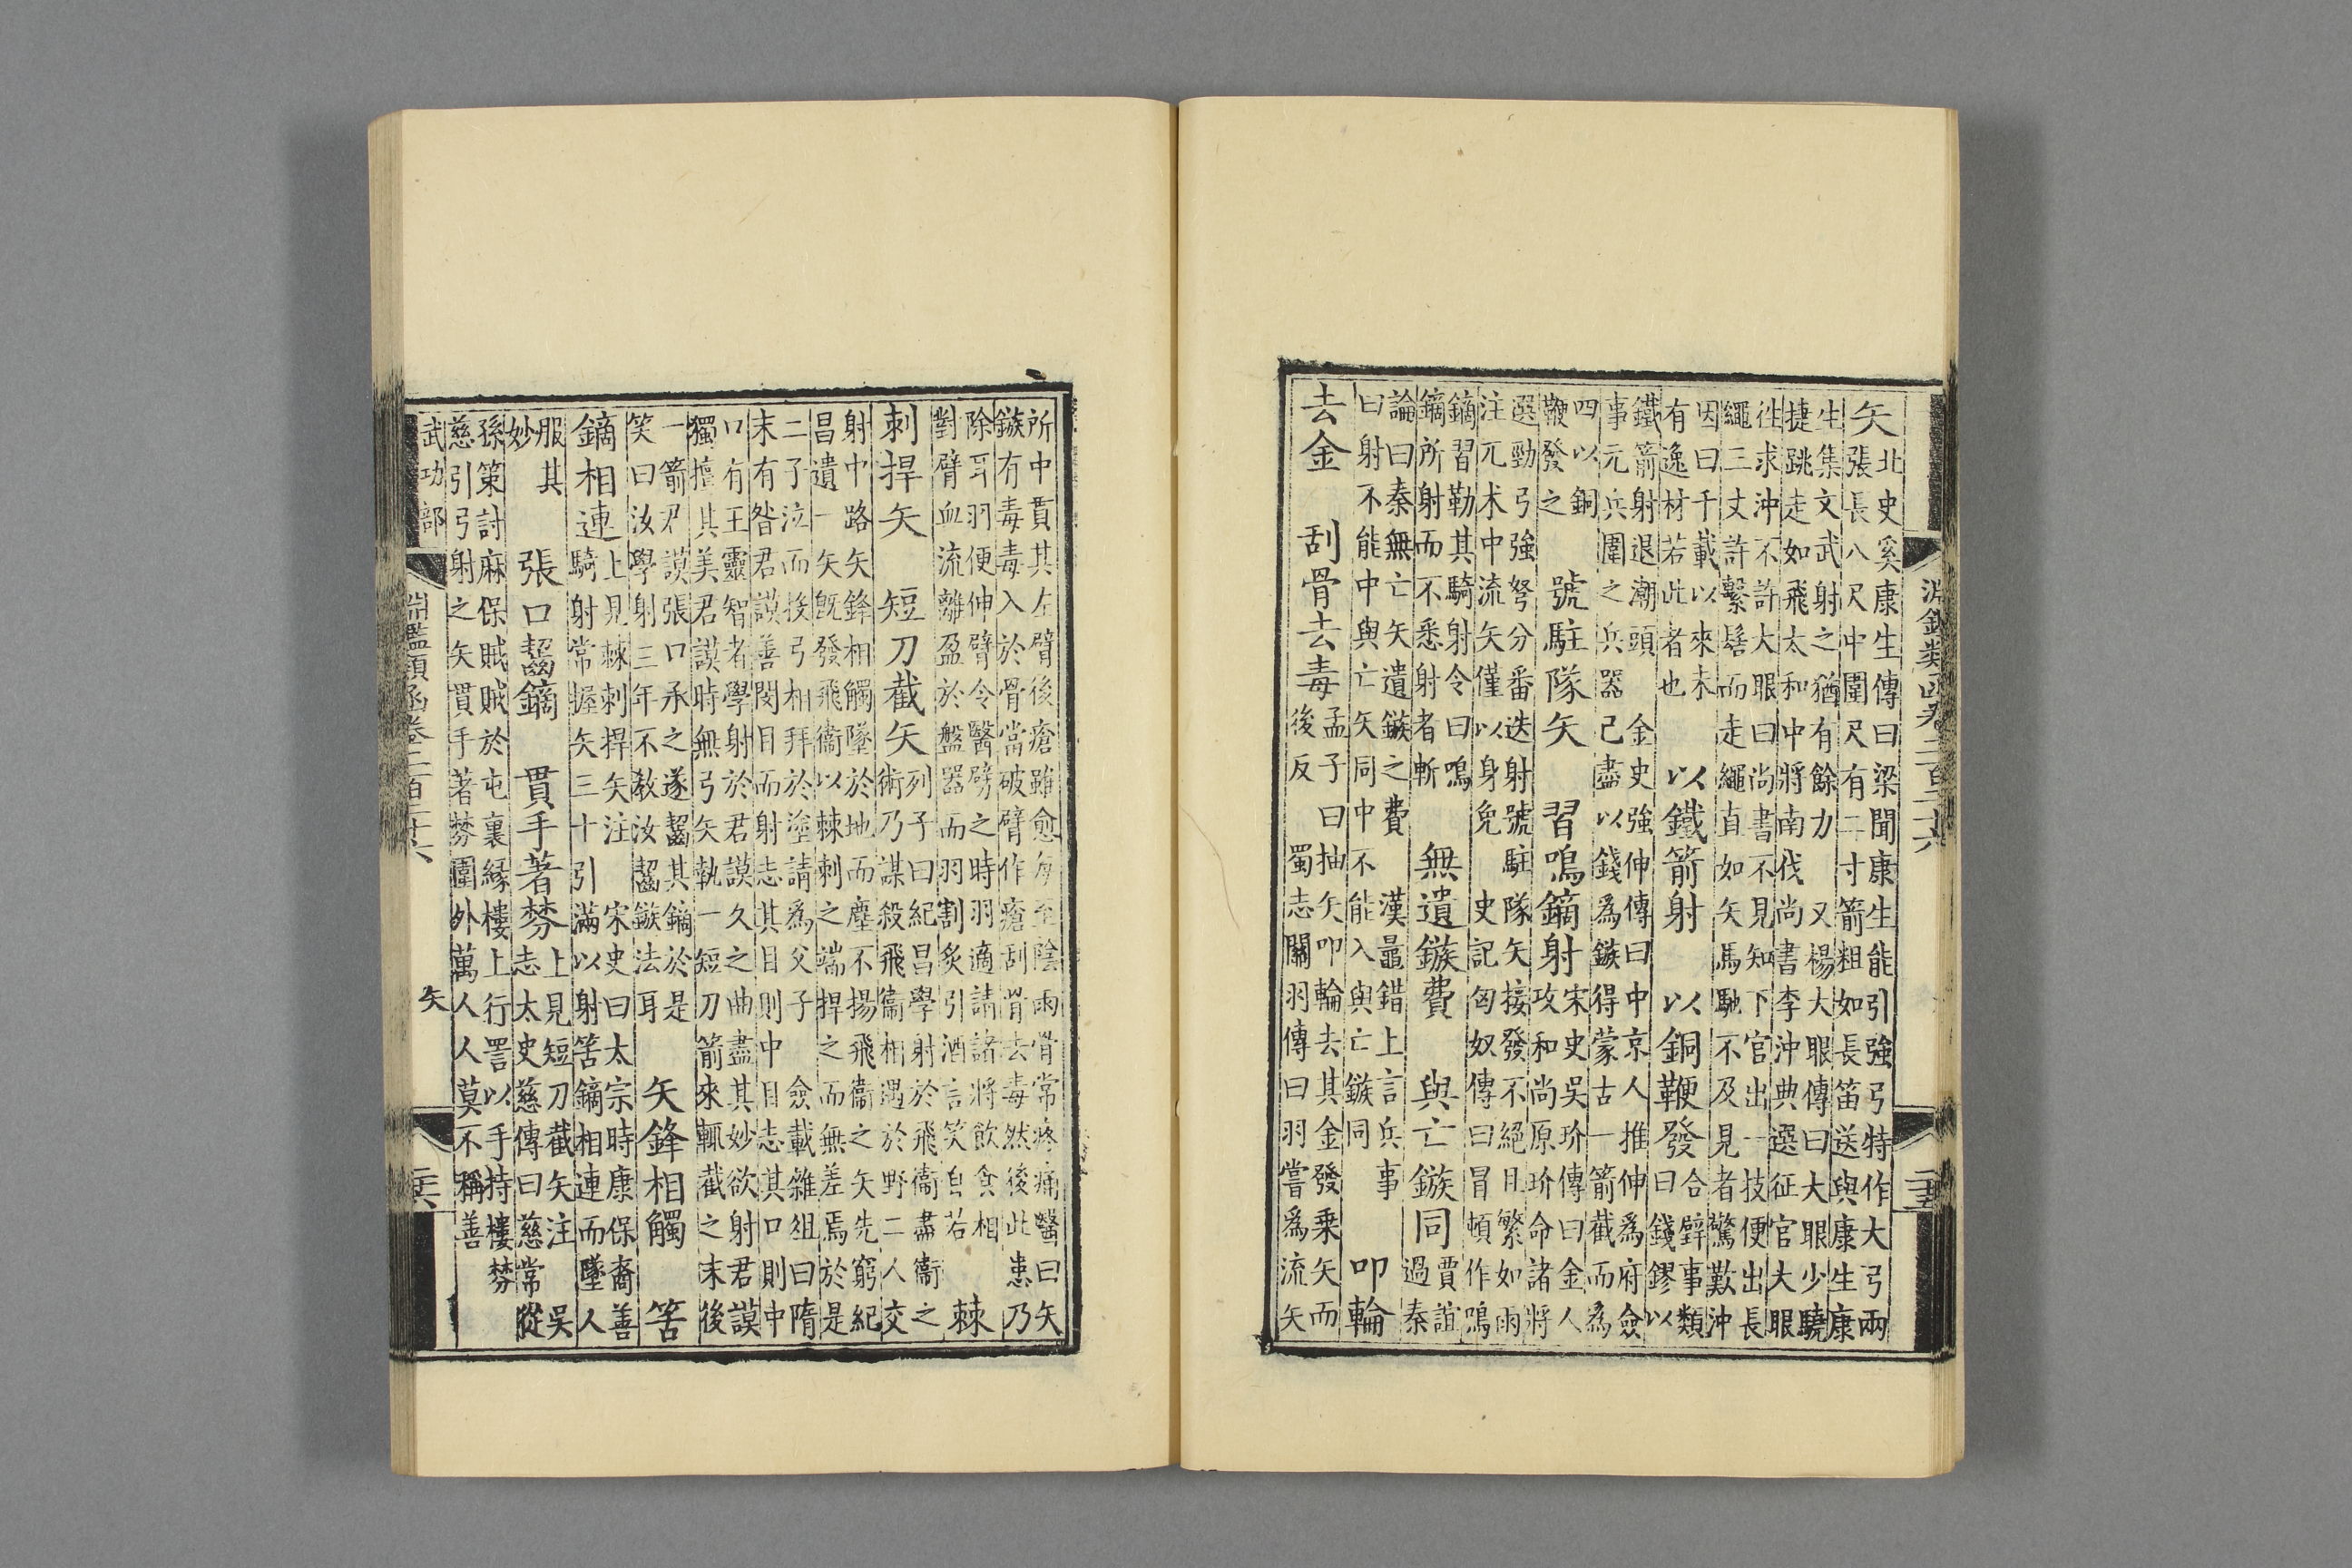 淵鑑類函卷二百二十六
二十五
矢北史奚康生傳曰梁聞康生能引強弓特作大弓兩
張長八尺中圍尺有二寸箭粗如長笛送與康生康
生集文武射之猶有餘力 又楊大眼傳曰大眼少驍
捷跳走如飛太和中將南伐尚書李沖典選征官大眼
徃求沖不許大眼曰尚書不見知下官出一技便出長
繩三丈許繫髻而走繩直如矢馬馳不及見者驚歎沖
因曰千載以來未
有逸材若此者也 以鐵箭射 以銅鞭發合辟事類
曰錢鏐以
鐵箭射退潮頭 金史強伸傳曰中京人推伸為府僉
事元兵圍之兵器已盡以錢為鏃得蒙古一箭截而為
四以銅
鞭發之 號駐隊矢 習鳴鏑射宋史吳玠傳曰金人
攻和尚原玠命諸將
選勁弓強弩分番迭射號駐隊矢接發不絕且繁如雨
注兀术中流矢僅以身免 史記匈奴傳曰冒頓作鳴
鏑習勒其騎射令曰鳴
鏑所射而不悉射者斬 無遺鏃費 與亡鏃同賈誼
過秦
論曰秦無亡矢遺鏃之費 漢鼂錯上言兵事
曰射不能中與亡矢同中不能入與亡鏃同 叩輪
去金 刮骨去毒孟子曰抽矢叩輪去其金發乗矢而
後反 蜀志關羽傳曰羽嘗爲流矢
所中貫其左臂後瘡雖愈每至陰雨骨常疼痛醫曰矢
鏃有毒毒入於骨當破臂作瘡刮骨去毒然後此患乃
除耳羽便伸臂令醫劈之時羽適請諸將飲食相
對臂血流離盈於盤器而羽割炙引酒言笑自若 棘
刺捍矢 短刀截矢列子曰紀昌學射於飛衞盡衞之
術乃謀殺飛衞相遇於野二人交
射中路矢矢鋒相觸墜於地而塵不揚飛衞之矢先窮紀
昌遺一矢旣發飛衞以棘刺之端捍之而無差焉於是
二子泣而投弓相拜於塗請爲父子 僉載雜俎曰隋
末有昝君謨善閉目而射志其目則中目志其口則中
口有王靈智者學射於君謨久之曲盡其妙欲射君謨
獨擅其美君謨時無弓矢執一短刀箭來輒截之末後
一箭君謨張口承之遂齧其鏑於是
笑曰汝學射三年不敎汝齧鏃法耳 矢鋒相觸 筈
鏑相連上見棘刺捍矢注 宋史曰太宗時康保裔善
騎射常握矢三十引滿以射筈鏑相連而墜人
服其
妙 張口齧鏑 貫手著棼上見短刀截矢注 吳
志太史慈傳曰慈常從
孫策討麻保賊賊於屯裏緣樓上行詈以手持樓棼
慈引弓射之矢貫手著棼圍外萬人人莫不稱善
武功部
淵鑑類函卷二百二十六
矢
二十六